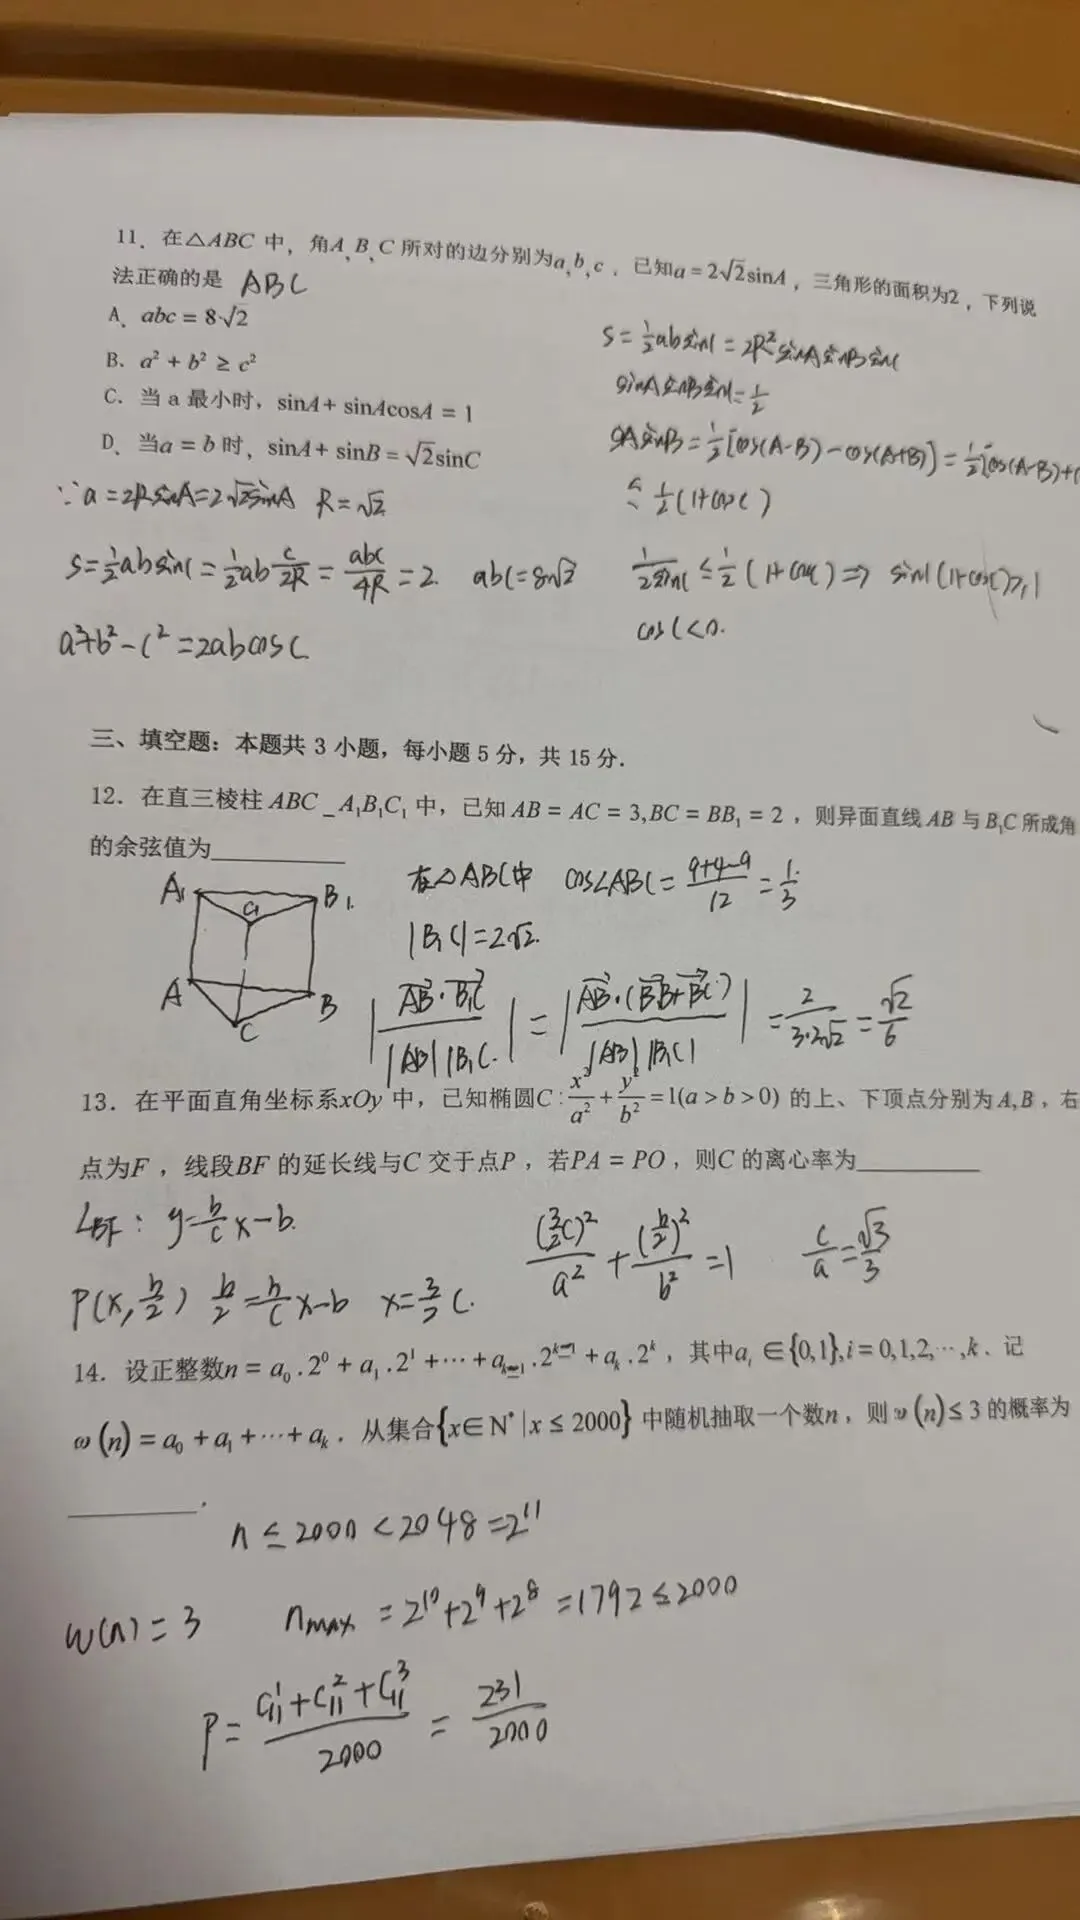 11. 在△ABC 中，角A、B、C 所对的边分别为a,b,c，已知a=2√2sinA，三角形的面积为2，下列说
法正确的是 ABC
A. abc = 8√2
B. a² + b² ≥ c²
C. 当 a 最小时，sinA + sinAcosA = 1
D. 当a = b 时，sinA + sinB = √2sinC
∵a=2RsinA=2√2sinA R=√2
S=½absinC=½ab c/2R = abc/4R =2 abc=8√2
a²+b²-c²=2abcosC
S=½absinC=2R²sinAsinBsinC
sinAsinBsinC=½
sinAsinB=½[cos(A-B)-cos(A+B)]=½[cos(A-B)+
≤ ½(1+cosC)
1/2sinC ≤ ½(1+cosC) ⇒ sinC(1+cosC)≥1
cosC<0.
三、填空题：本题共 3 小题，每小题 5 分，共 15 分.
12. 在直三棱柱 ABC _ A₁B₁C₁ 中，已知 AB = AC = 3, BC = BB₁ = 2，则异面直线 AB 与 B₁C 所成角
的余弦值为
A₁ B₁ C₁ A B C
在△ABC中 cos∠ABC = 9+4-9/12 = 1/3
|B₁C|=2√2.
|AB·B₁C / |AB||B₁C| | = |AB·(B₁B+BC) / |AB||B₁C| | = 2/3·2√2 = √2/6
13. 在平面直角坐标系xOy 中，已知椭圆C: x²/a² + y²/b² = 1(a > b > 0) 的上、下顶点分别为 A, B，右
点为F，线段BF 的延长线与C 交于点P，若PA = PO，则C 的离心率为
L_BF: y=b/c x-b.
P(x, b/2) b/2 = b/c x-b x=3/2 c.
(3/2 c)²/a² + (b/2)²/b² =1 c/a = √3/3
14. 设正整数n = a₀.2⁰ + a₁.2¹ + ⋯ + aₖ₋₁.2ᵏ⁻¹ + aₖ.2ᵏ，其中aᵢ ∈{0,1}, i = 0,1,2,⋯,k. 记
ω(n) = a₀ + a₁ + ⋯ + aₖ. 从集合{x∈N* | x ≤ 2000} 中随机抽取一个数n，则ω(n) ≤ 3 的概率为
.
n ≤ 2000 < 2048 = 2¹¹
w(n) = 3 nmax = 2¹⁰+2⁹+2⁸ = 1792 ≤ 2000
P = C₁₁¹+C₁₁²+C₁₁³/2000 = 231/2000